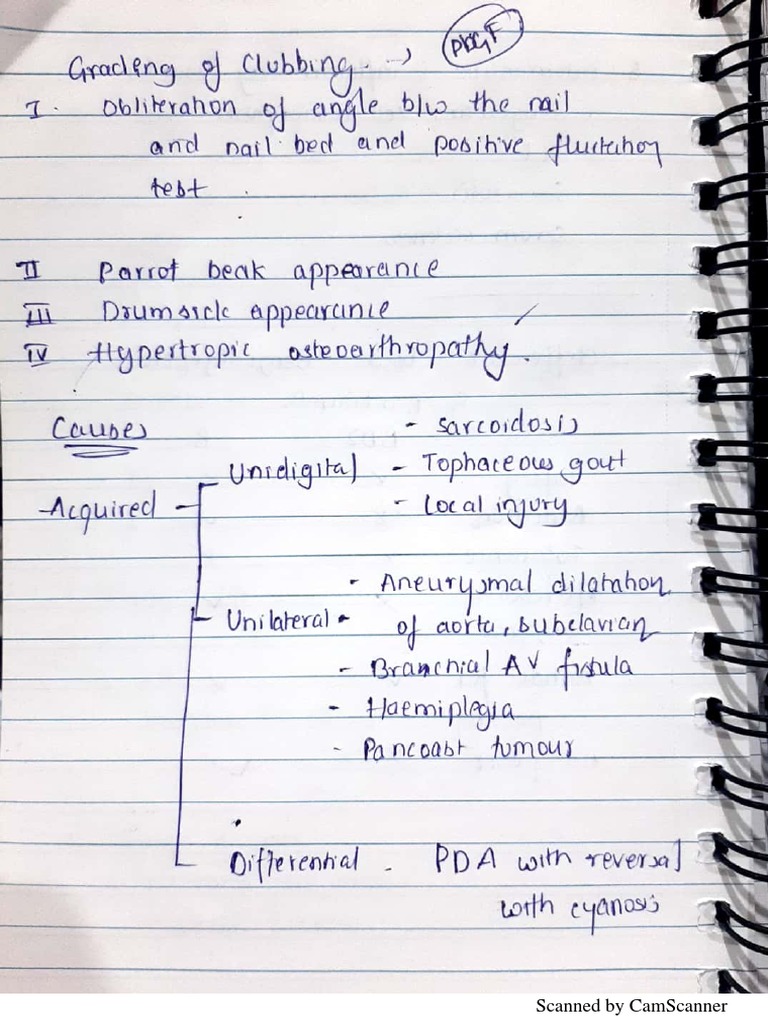 Grading of Clubbing. → PDGF
I. Obliteration of angle b/w the nail
and nail bed and positive fluctation
test
II Parrot beak appearance
III Drumsick appearance
IV Hypertropic osteoarthropathy.
Causes
- Sarcoidosis
Unidigital - Tophaceous gout
Acquired - Local injury
- Aneurysmal dilatation
Unilateral - of aorta, subclavian
- Branchial AV fistula
- Haemiplegia
- Pancoast tumour
Differential - PDA with reversal
with cyanosis
Scanned by CamScanner